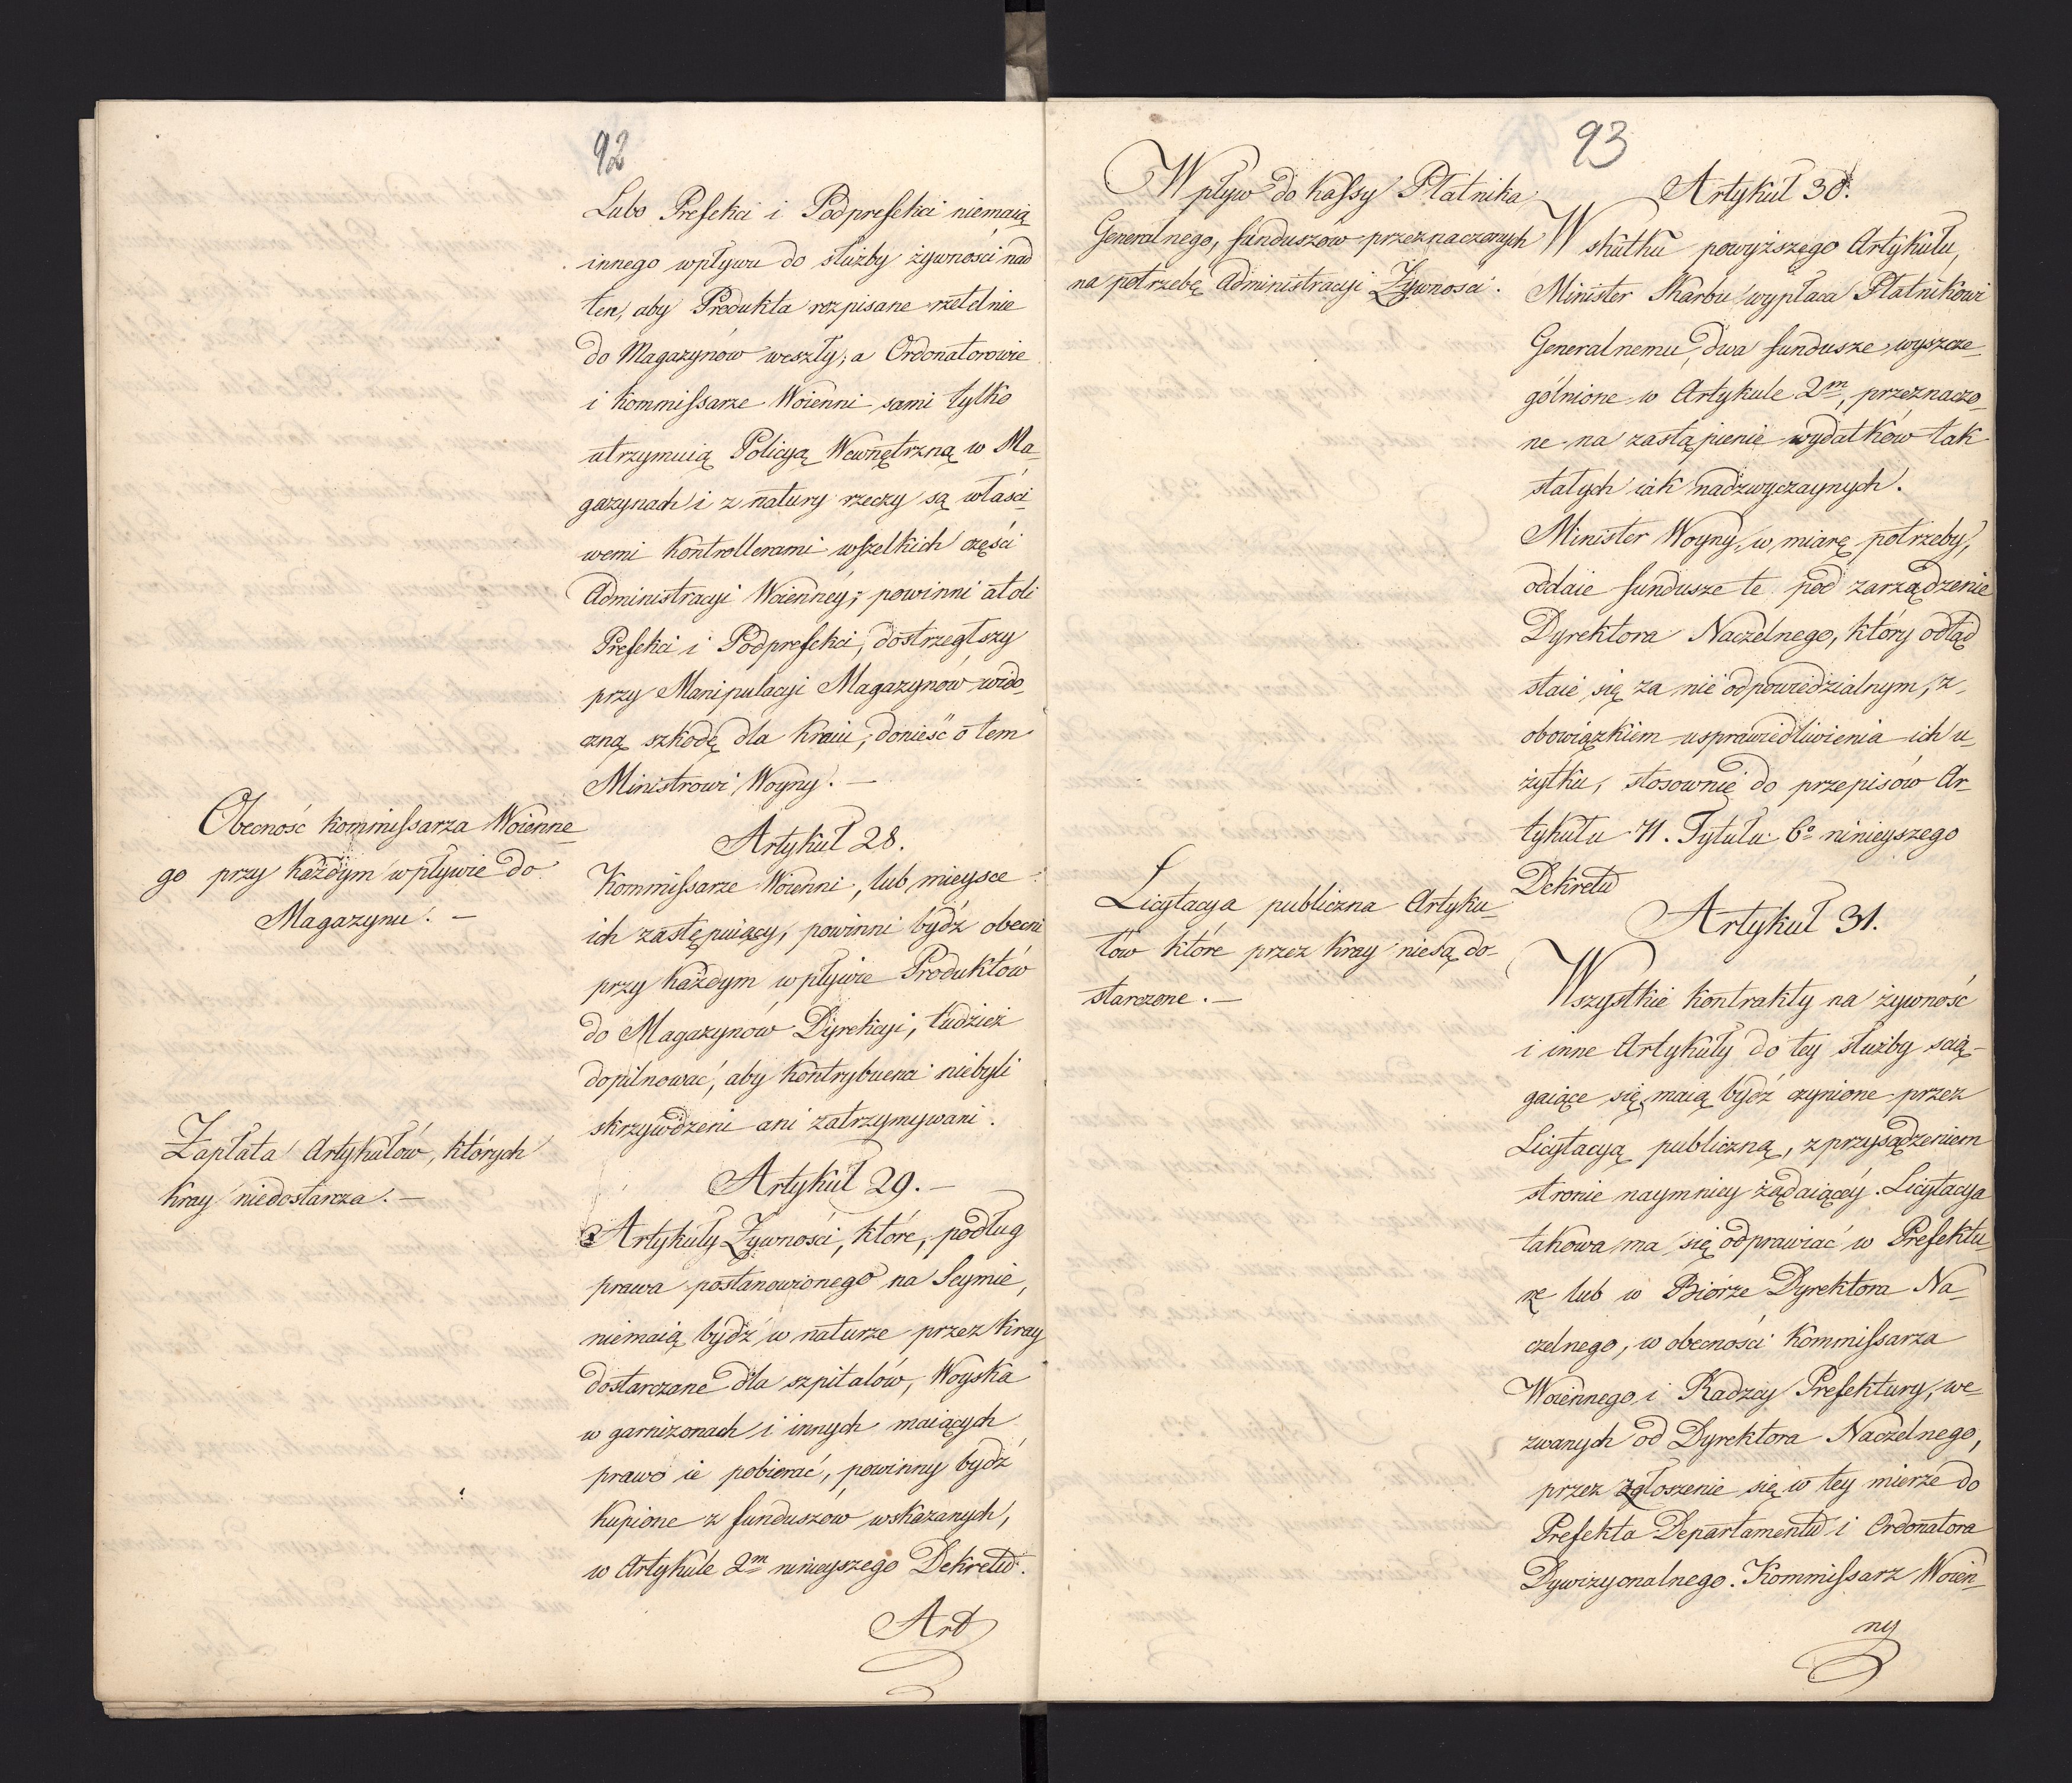 92
Lubo Prefekci i Podprefekci niemaią
innego wpływu do służby żywności nad
ten, aby Produkta rozpisane rzetelnie
do Magazynów weszły; a Ordonatorowie
i Kommissarze Woienni sami tylko
utrzymuią Policyą Wewnętrzną w Ma-
gazynach i z natury rzeczy są właści-
wemi Kontrollerami wszelkich części
Administracyi Woiennéy; powinni atoli
Prefekci i Podprefekci, dostrzegłszy
przy Manipulacyi Magazynów wido-
czną szkodę dla Kraiu, donieść o tem
Ministrowi Woyny. —
Obecność Kommissarza Woienne-
go przy każdym wpływie do
Magazynu. —
Artykuł 28.
Kommissarze Woienni, lub mieysce
ich zastępuiący, powinni bydź obecni
przy każdym wpływie Produktów
do Magazynów Dyrekcyi, tudzież
dopilnować, aby Kontrybuenci niebyli
skrzywdzeni ani zatrzymywani.
Zapłata Artykułów, których
Kray niedostarcza. —
Artykuł 29. —
Artykuły Żywności, które, podług
prawa postanowionego na Seymie,
niemaią bydź w naturze przez Kray
dostarczane dla szpitalów, Woyska
w garnizonach i innych maiących
prawo ie pobierać, powinny bydź
kupione z funduszów wskazanych,
w Artykule 2m ninieyszego Dekretu.
Art
93
Wpływ do Kassy Płatnika
Generalnego, funduszów przeznaczonych
na potrzebę Administracyi Żywności.
Artykuł 30.
W skutku powyższego Artykułu,
Minister Skarbu wypłaca Płatnikowi
Generalnemu, dwa fundusze wyszcze-
gólnione w Artykule 2m, przeznaczo-
ne na zastąpienie wydatków tak
stałych iak nadzwyczaynych.
Minister Woyny, w miarę potrzeby,
oddaie fundusze te pod zarządzenie
Dyrektora Naczelnego, który odtąd
staie się za nie odpowiedzialnym, z
obowiązkiem usprawiedliwienia ich u-
żytku, stosownie do przepisów Ar-
tykułu 71. Tytułu 6o ninieyszego
Dekretu
Licytacya publiczna Artyku-
łów które przez Kray niesą do-
starczone. —
Artykuł 31.
Wszystkie Kontrakty na żywność
i inne Artykuły do tey służby ścią-
gaiące się, maią bydź czynione przez
Licytacyą publiczną, z przysądzeniem
stronie naymniey żądaiącéy. Licytacya
takowa ma się odprawiać w Prefektu-
rze lub w Biórze Dyrektora Na-
czelnego, w obecności Kommissarza
Woiennego i Radzcy Prefektury, we-
zwanych od Dyrektora Naczelnego,
przez zgłoszenie się w tey mierze do
Prefekta Departamentu i Ordonatora
Dywizyonalnego. Kommissarz Woien-
ny